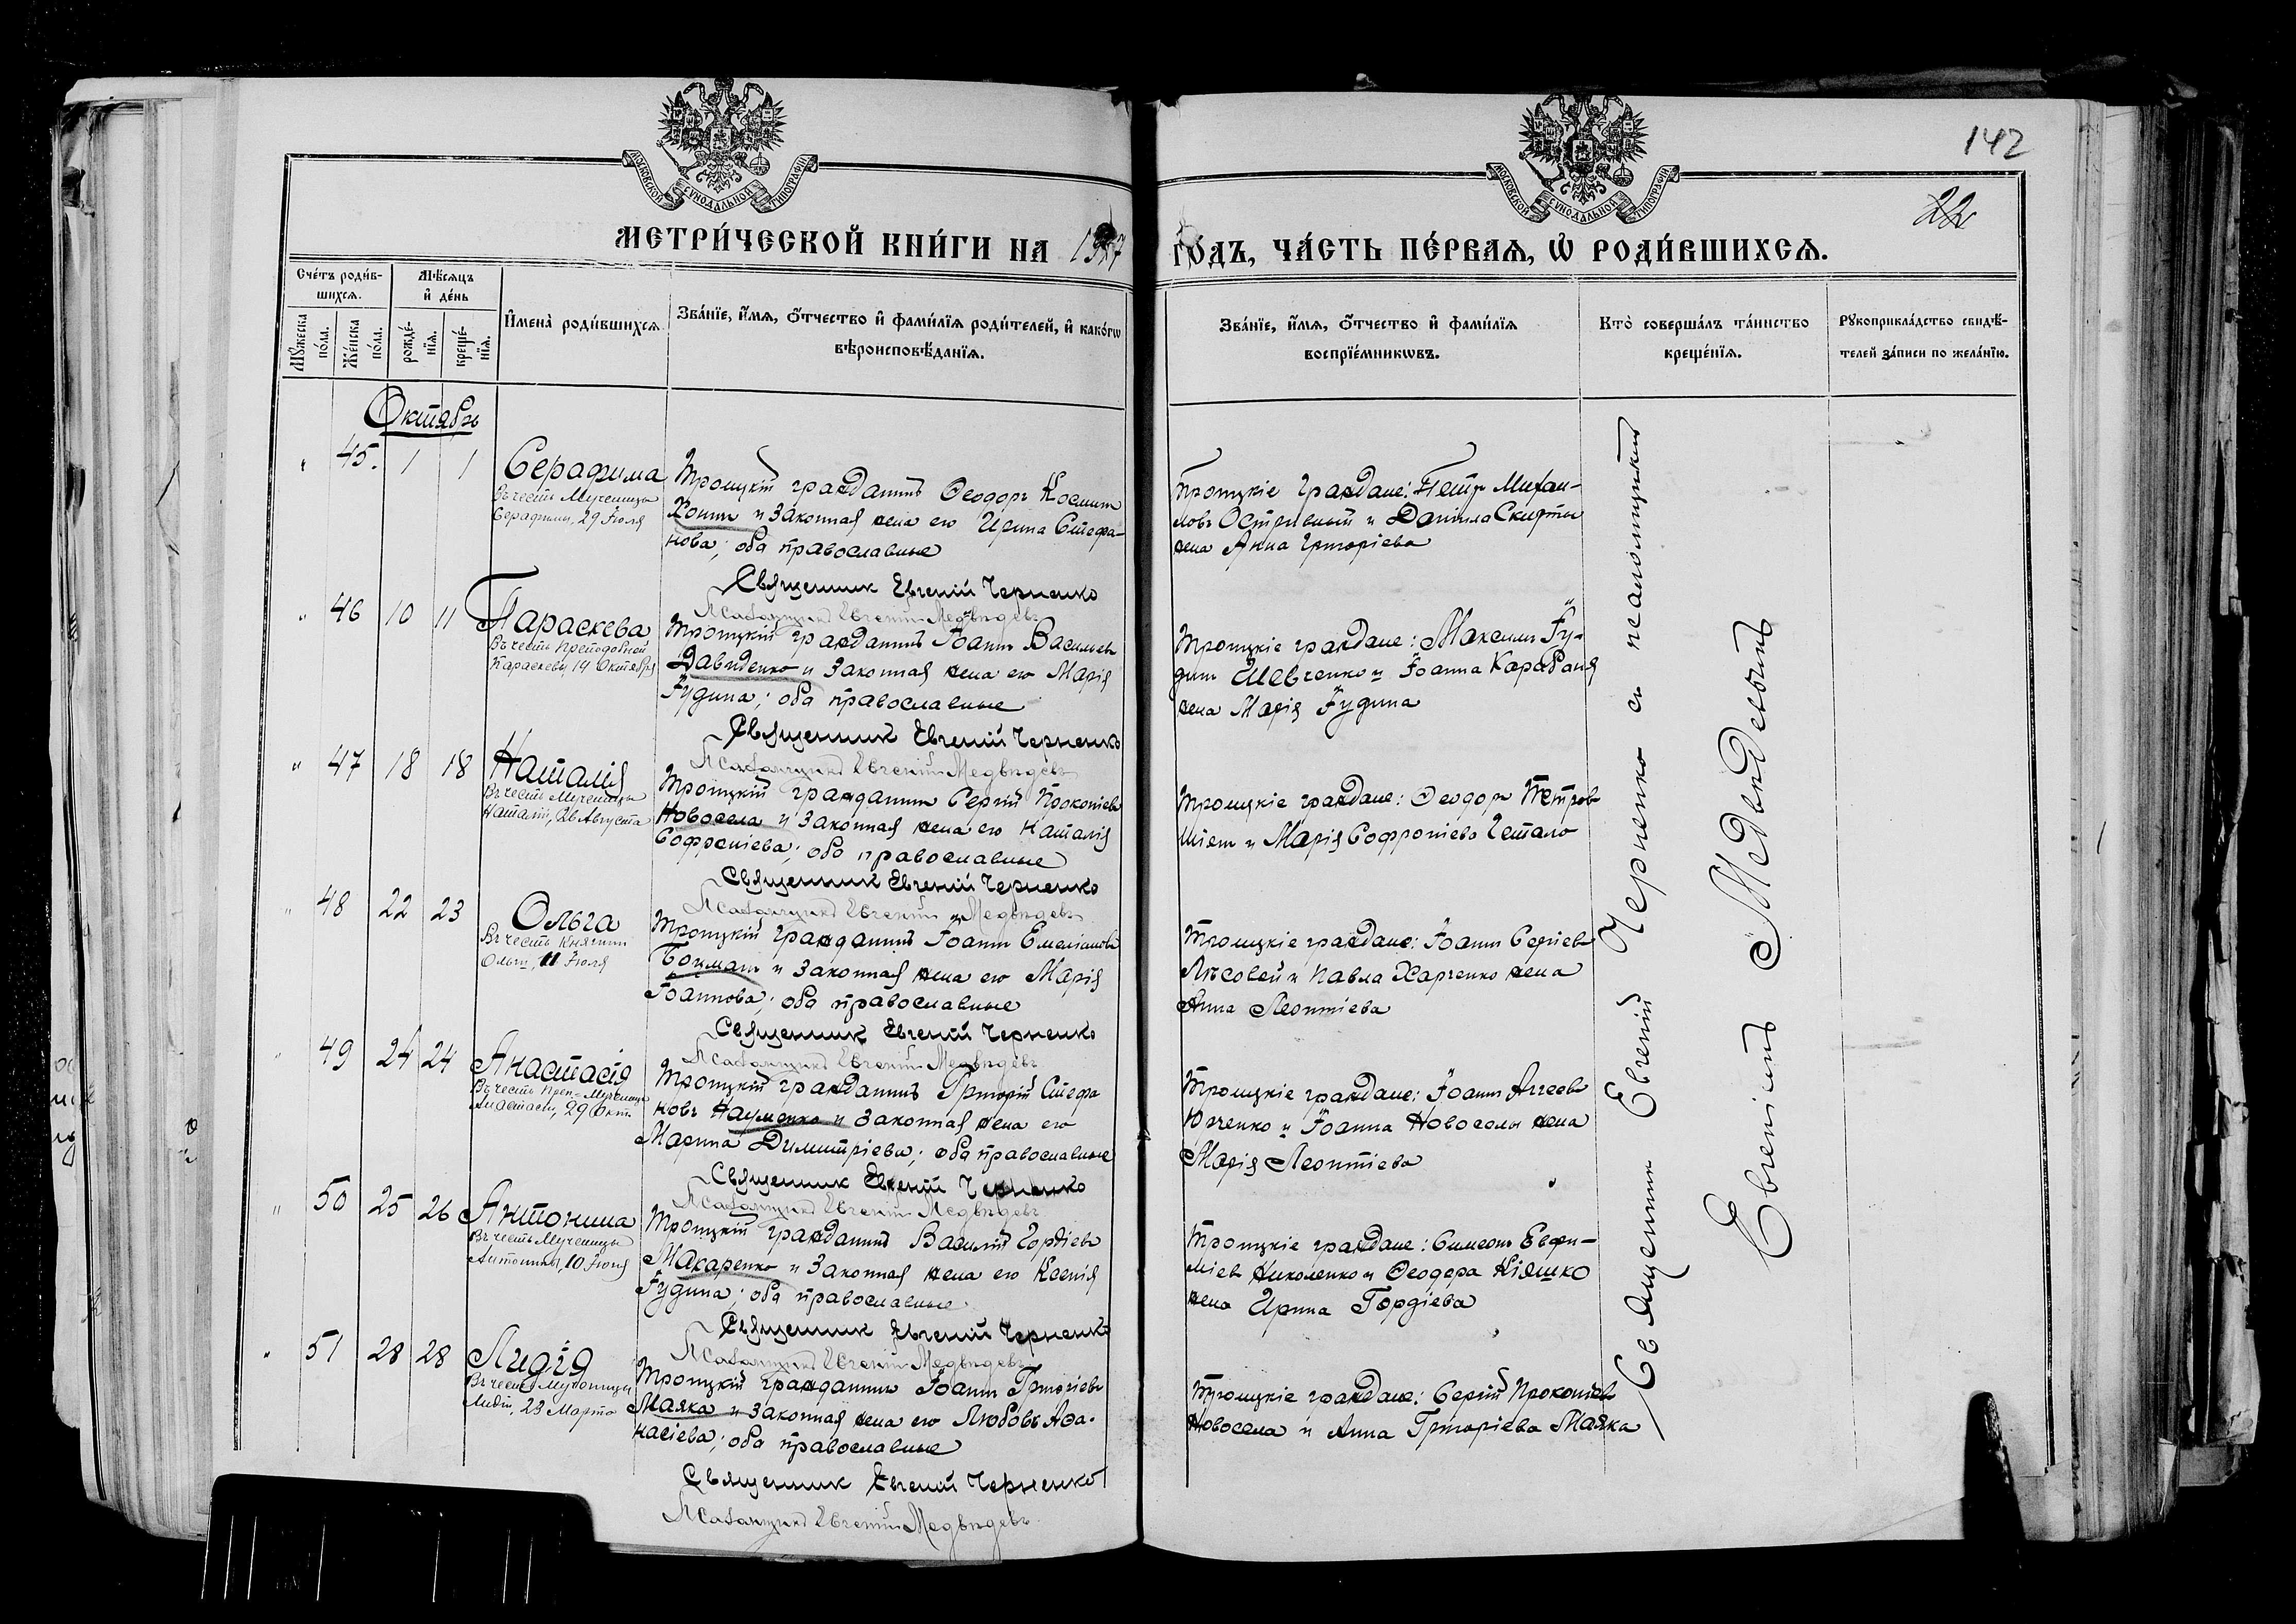 142
22
МОСКОВСКОЙ СѴНОДАЛЬНОЙ ТИПОГРАФІИ
МОСКОВСКОЙ СѴНОДАЛЬНОЙ ТИПОГРАФІИ
МЕТРИ́ЧЕСКОЙ КНИ́ГИ НА 1917 ГО́ДЪ, ЧА́СТЬ ПЕ́РВАЯ, Ѡ РОДИ́ВШИХСЯ.
Сче́тъ роди́в-
шихся.
Мѣ́сяцъ
и҆ де́нь
Мꙋ́жеска
по́ла.
Же́нска
по́ла.
рожде́-
нїя.
креще́-
нїя.
И҆мена̀ роди́вшихся
Зва́нїе, и҆́мя, ѻ҆́тчество и҆ фами́лїя роди́телей, и҆ како́гѡ
вѣроисповѣ́данїя.
Зва́нїе, и҆́мя, ѻ҆́тчество и҆ фами́лїя
воспрїе́мникѡвъ.
Кто̀ соверша́лъ та́инство
креще́нїя.
Рꙋкоприкла́дство свидѣ́-
телей за́писи по жела́нїю.
Октябрь
" 45. 1 1 Серафима
Въ честь Мученицы
Серафимы, 29 Іюля
Троицкій гражданинъ Ѳеодоръ Косминъ
Хоинъ и законная жена его Ирина Стефа-
нова; оба православные
Священник Евгений Черненко
Псаломщикъ Евгеній Медвѣдевъ
Троицкіе граждане: Петръ Михаи-
ловъ Остривный и Даніила Скирты
жена Анна Григоріева
" 46 10 11 Параскева
Въ честь Преподобной
Параскевы, 14 Октября
Троицкій гражданинъ Іоаннъ Васильевъ
Давиденко и законная жена его Марія
Іудина; оба православные
Священник Евгений Черненко
Псаломщикъ Евгеній Медвѣдевъ
Троицкіе граждане: Максимъ Іу-
динъ Шевченко и Іоанна Карабаня
жена Марія Іудина
" 47 18 18 Наталія
Въ честь Мученицы
Наталіи, 26 Августа
Троицкій гражданинъ Сергій Прокопіевъ
Новосела и законная жена его Наталія
Софроніева; оба православные
Священник Евгений Черненко
Псаломщикъ Евгеній Медвѣдевъ
Троицкіе граждане: Ѳеодоръ Петровъ
и Марія Софроніева
" 48 22 23 Ольга
Въ честь Княгини
Ольги, 11 Іюля
Троицкій гражданинъ Іоаннъ Емеліановъ
Боцманъ и законная жена его Марія
Іоаннова; оба православные
Священник Евгений Черненко
Псаломщикъ Евгеній Медвѣдевъ
Троицкіе граждане: Іоаннъ Сергіевъ
Лѣсовей и Павла Харченко жена
Анна Леонтіева
" 49 24 24 Анастасія
Въ честь Преп-Мученицы
Анастасіи, 29 Окт.
Троицкій гражданинъ Григорій Стефа
новъ Науменко и законная жена его
Марина Димитріева; оба православные
Священник Евгений Черненко
Псаломщикъ Евгеній Медвѣдевъ
Троицкіе граждане: Іоаннъ Аггеевъ
Юрченко и Іоанна Новоселы жена
Марія Леонтіева
" 50 25 26 Антонина
Въ честь Мученицы
Антонины, 10 Іюня
Троицкій гражданинъ Василій Гордіевъ
Макаренко и законная жена его Ксенія
Іудина; оба православные
Священник Евгений Черненко
Псаломщикъ Евгеній Медвѣдевъ
Троицкіе граждане: Симеонъ Евфи-
міевъ Николенко и Ѳеодора Кіяшко
жена Ирина Гордіева
" 51 28 28 Лидія
Въ честь Мученицы
Лидіи, 23 Марта
Троицкій гражданинъ Іоаннъ Григоріевъ
Маяка и законная жена его Любовь Аѳа-
насіева; оба православные
Священник Евгений Черненко
Псаломщикъ Евгеній Медвѣдевъ
Троицкіе граждане: Сергій Прокопіевъ
Новосела и Анна Григоріева Маяка
Священник Евгеній Черненко съ псаломщикомъ
Евгеніемъ Медвѣдевымъ